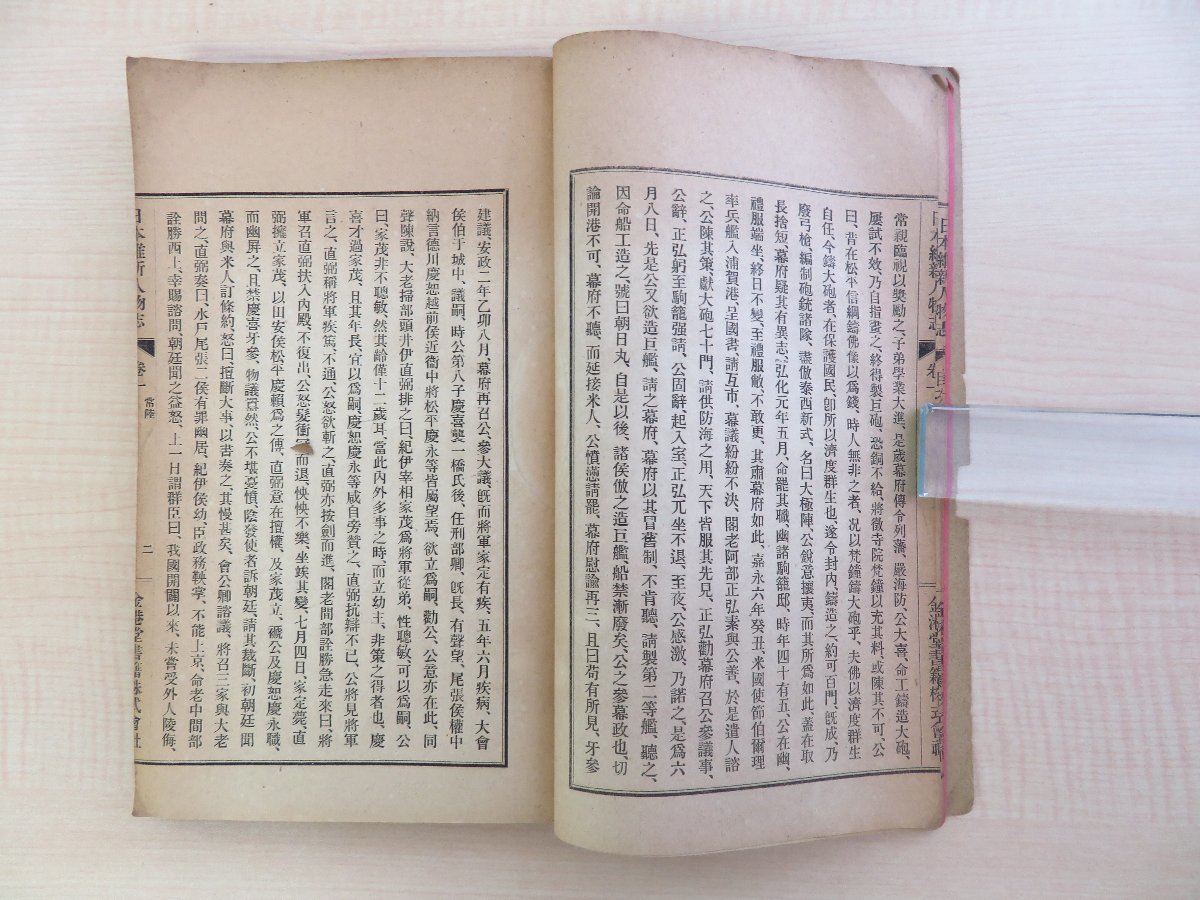 常親臨視以奬勵之、子弟學業大進、是歲幕府傳令列藩、嚴海防、公大喜、命工鑄造大砲、
屢試不效、乃自指畫之、終得製巨砲、恐銅不給、將徵寺院梵鐘以充其料、或陳其不可、公
曰、昔在松平信綱鑄佛像以爲錢、時人無非之者、况以梵鐘鑄大砲乎、夫佛以濟度群生
自任、今鑄大砲者、在保護國民、卽所以濟度群生也、遂令封內鑄造之、約可百門、旣成、乃
廢弓槍、編制砲銃諸隊、盡倣泰西新式、名曰大極陣、公銳意攘夷、而其所爲如此、蓋在取
長捨短、幕府疑其有異志、弘化元年五月、命罷其職、幽諸駒籠邸、時年四十有五、公在幽、
禮服端坐、終日不變、至禮服敝、不敢更、其肅幕府如此、嘉永六年癸丑、米國使節伯爾理
率兵艦入浦賀港、呈國書、請互市、幕議紛紛不決、閣老阿部正弘素與公善、於是遣人諮
之、公陳其策、獻大砲七十門、請供防海之用、天下皆服其先見、正弘勸幕府召公參議事、
公辭、正弘躬至駒籠强請、公固辭起入室、正弘兀坐不退、至夜、公感激、乃諾之、是爲六
月八日、先是公又欲造巨艦、請之幕府、幕府以其冒舊制、不肯聽、請製第二等艦、聽之、
因命船工造之、號曰朝日丸、自是以後、諸侯倣之造巨艦、船禁漸廢矣、公之參幕政也、切
論開港不可、幕府不聽、而延接米人、公憤懣請罷、幕府慰諭再三、且曰苟有所見、牙參
建議、安政二年乙卯八月、幕府再召公、參大議、旣而將軍家定有疾、五年六月疾病、大會
侯伯于城中、議嗣、時公第八子慶喜襲一橋氏後、任刑部卿、旣長、有聲望、尾張侯權中
納言德川慶恕越前侯近衞中將松平慶永等皆屬望焉、欲立爲嗣、勸公、公意亦在此、同
聲陳說、大老掃部頭井伊直弼排之曰、紀伊宰相家茂爲將軍從弟、性聰敏、可以爲嗣、公
曰、家茂非不聰敏、然其齡僅十二歲耳、當此內外多事之時、而立幼主、非策之得者也、慶
喜才過家茂、且其年長、宜以爲嗣、慶恕慶永等咸自旁贊之、直弼抗辯不已、公將見將軍
言之、直弼稱將軍疾篤、不通、公怒欲斬之、直弼亦按劍而進、閣老間部詮勝急走來曰、將
軍召直弼、扶入內殿、不復出、公怒髮衝而退、怏怏不樂、坐竢其變、七月四日、家定薨、直
弼擁立家茂、以田安侯松平慶賴爲之傅、直弼意在擅權、及家茂立、褫公及慶恕慶永職、
而幽屛之、且禁慶喜牙參、物議囂然、公不堪憂憤、陰發使者訴朝廷、請其裁斷、初朝廷聞
幕府與米人訂條約、怒曰、擅斷大事、以書奏之、其慢甚矣、會公卿諮議、將召三家與大老
問之、直弼奏曰、水戶尾張二侯有罪幽居、紀伊侯幼、臣政務鞅掌、不能上京、命老中間部
詮勝西上、幸賜諮問、朝廷聞之益怒、上一日謂群臣曰、我國開闢以來、未嘗受外人陵侮、
日本維新人物志
卷一
常陸
二
金港堂書籍株式會社